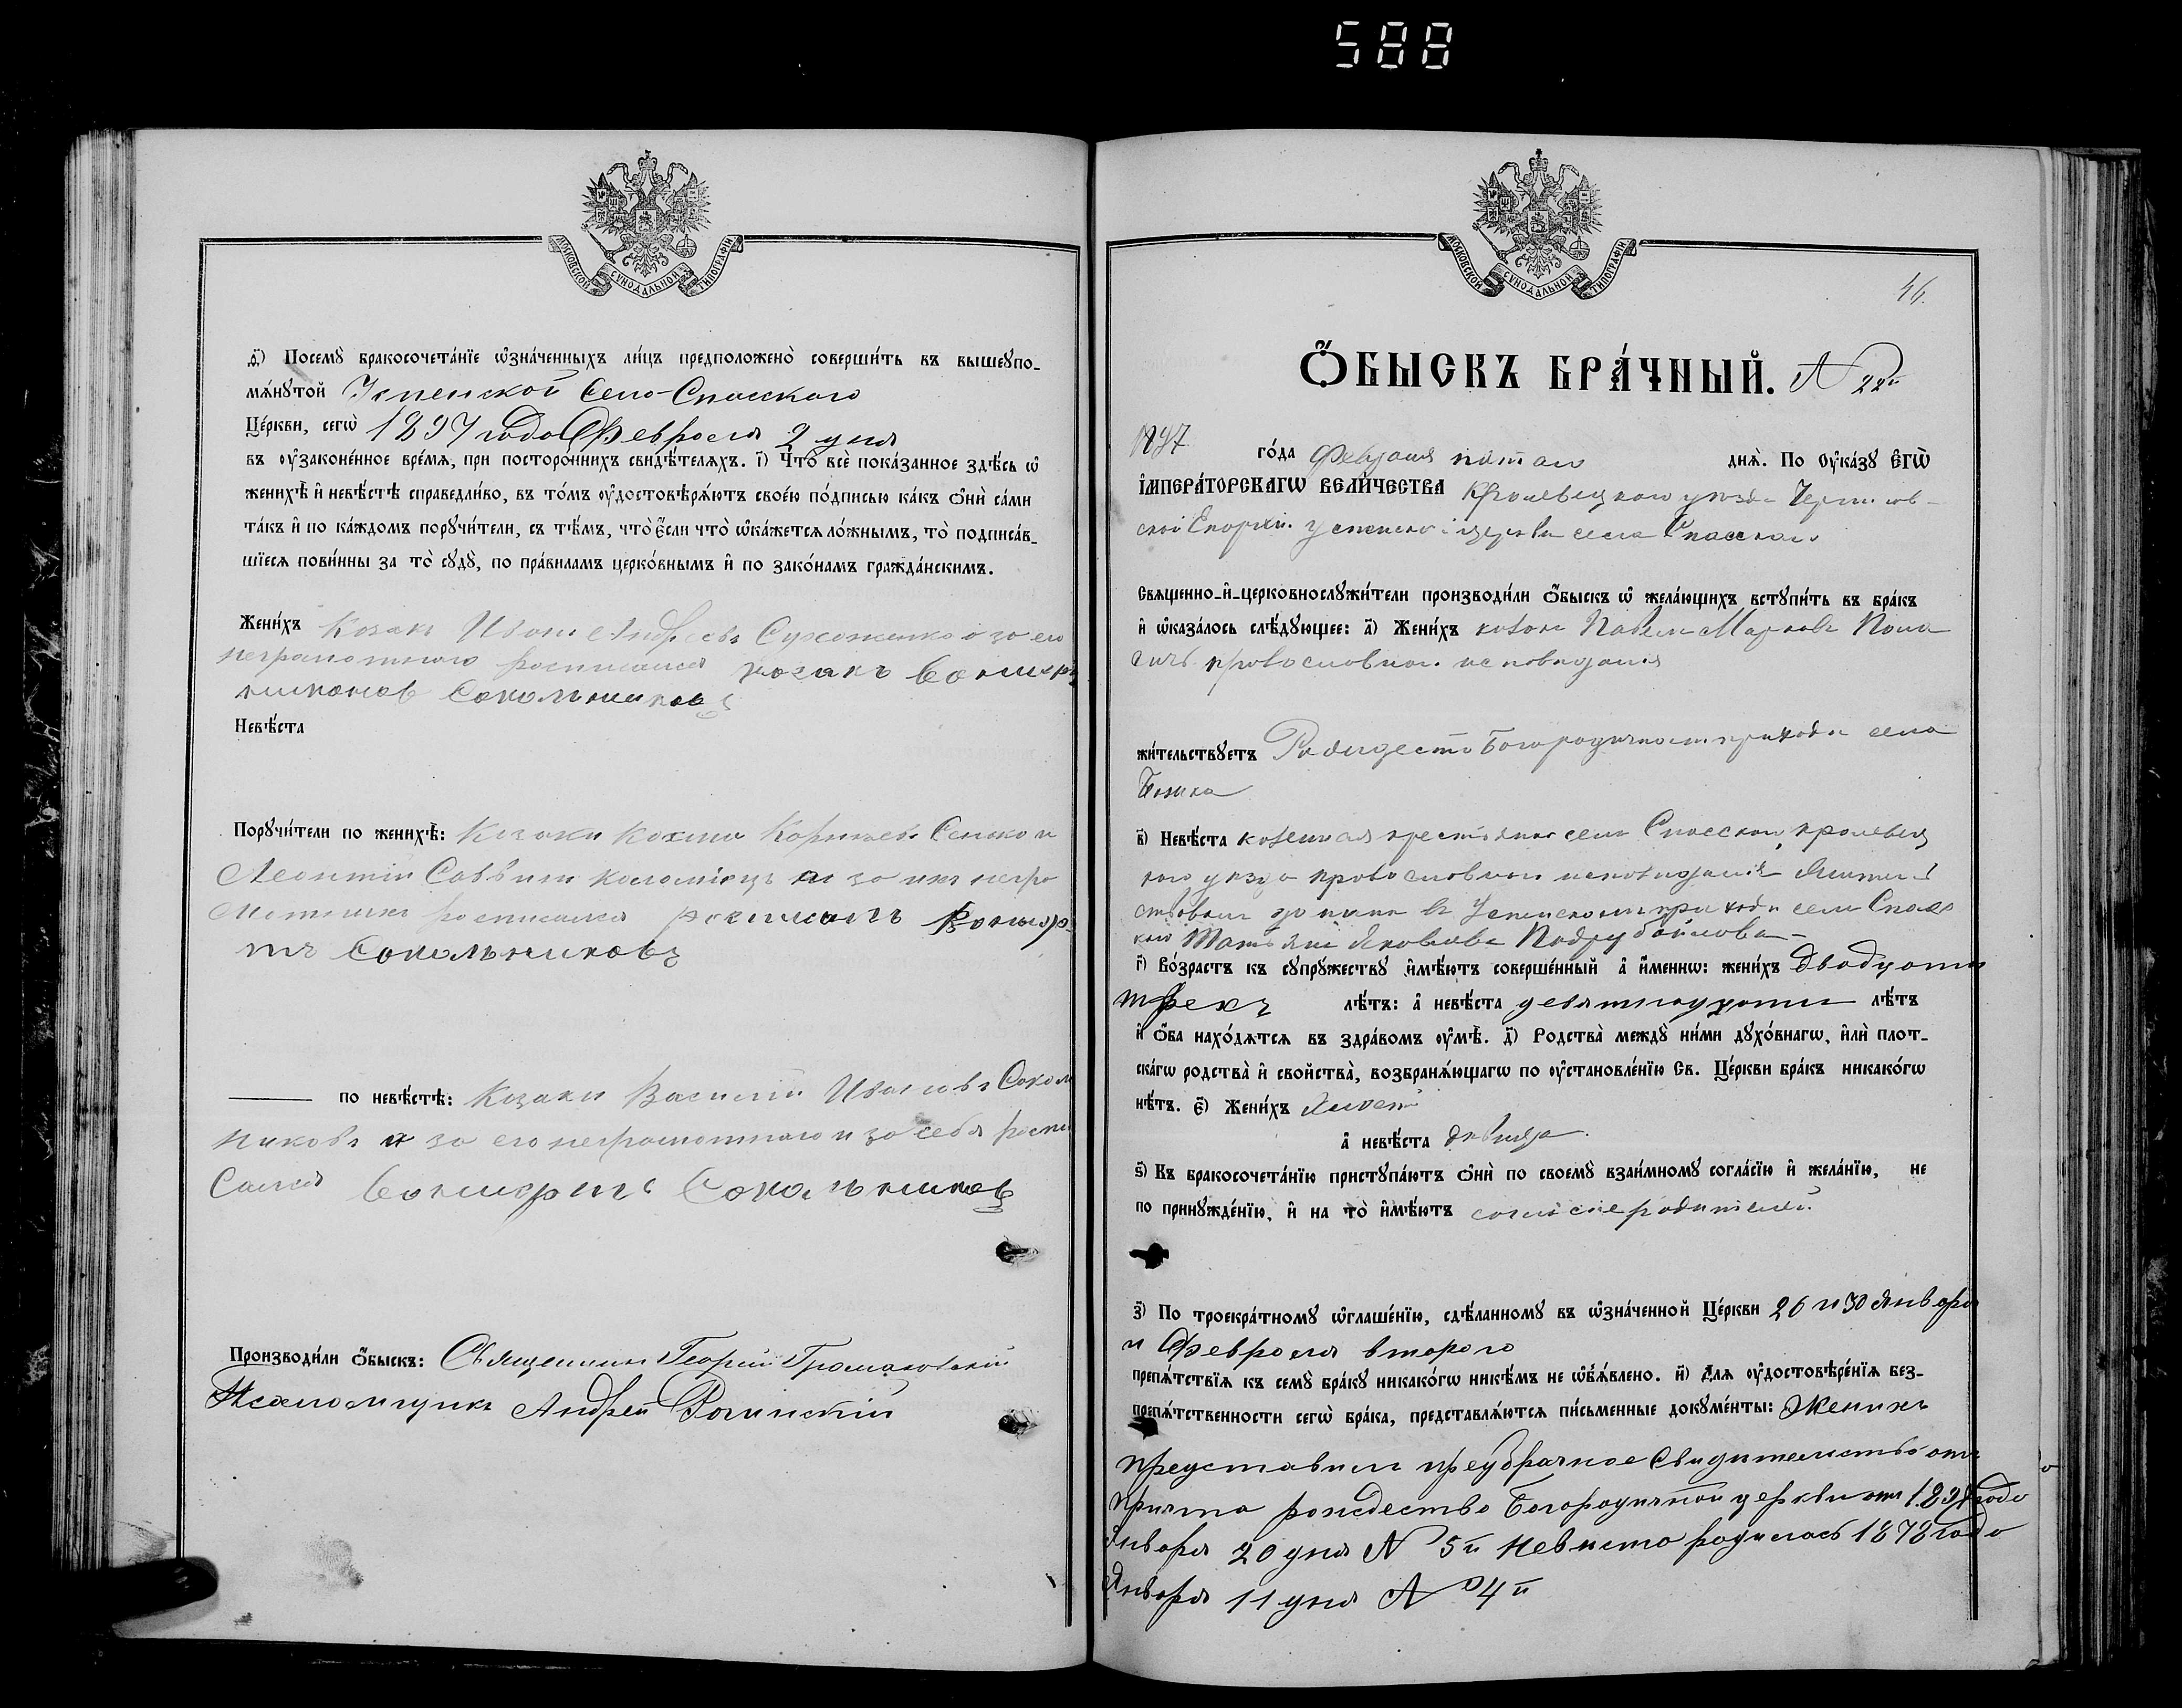 588
МОСКОВСКОЙ СѴНОДАЛЬНОЙ ТИПОГРАФІИ
ѳ҃) Посемꙋ̀ бракосочета́нїе ѡ҆зна́ченныхъ ли́цъ предположено̀ соверши́ть въ вышеꙋпо-
мѧ́нꙋтой Успенской Село-Спасскаго
Це́ркви, сегѡ̀ 1897 года Февраля 2 дня
въ ᲂу҆законе́нное вре́мѧ, при посторо́ннихъ свидѣ́телѧхъ. і҃) Что̀ всѐ пока́занное здѣ́сь ѡ҆
женихѣ̀ и҆ невѣ́стѣ справедли́во, въ то́мъ ᲂу҆достовѣрѧ́ютъ свое́ю по́дписью ка́къ ѻ҆нѝ са́ми
та́къ и҆ по ка́ждомъ порꙋчи́тели, съ тѣ́мъ, что̀ є҆́сли что̀ ѡ҆ка́жетсѧ ло́жнымъ, то̀ подписа́в-
шїесѧ пови́нны за то̀ сꙋдꙋ̀, по пра́виламъ церко́внымъ и҆ по зако́намъ гражда́нскимъ.
Жени́хъ Козакъ Иванъ Андреевъ Сухоженко а за его
неграмотнаго росписался козакъ
Сокольников
Невѣ́ста
Порꙋчи́тели по женихѣ̀: Козаки Козма Корнеевъ Сенко и
Леонтій Саввинъ Коломіецъ а за ихъ негра
мотныхъ росписался
Сокольниковъ
по невѣ́стѣ: Козаки Василій Ивановъ Соколь
никовъ и за его неграмотнаго и за себя роспи
сался Сокольников
Производи́ли ѻ҆́быскъ: Священникъ Георгій Громаковскій
Псаломщикъ Андрей Рогинскій
МОСКОВСКОЙ СѴНОДАЛЬНОЙ ТИПОГРАФІИ
46.
Ѻ҆́БЫСКЪ БРА́ЧНЫЙ. N 22й
1897 го́да Февраля пятаго днѧ̀. По ᲂу҆ка́зꙋ є҆гѡ̀
і҆мпера́торскагѡ вели́чества Кролевецкаго уѣзда Чернигов-
ской Епархіи Успенской церкви села Спасскаго
Свѧщенно-и҆-церковнослꙋжи́тели производи́ли ѻ҆́быскъ ѡ҆ жела́ющихъ встꙋпи́ть въ бра́къ
и҆ ѡ҆каза́лось слѣ́дꙋющее: а҃) Жени́хъ козакъ Павелъ Марковъ
православнаго исповѣданія
жи́тельствꙋетъ Рождество Богородичномъ приходѣ села
в҃) Невѣ́ста козенная крестьянка села Спасскаго, кролевец
каго уѣзда православнаго исповѣданія жительст
вовала до нынѣ въ Успенскомъ приходѣ села Спасс
каго Татьяна Яковлева
г҃) Во́зрастъ къ сꙋпрꙋ́жествꙋ и҆мѣ́ютъ соверше́нный а҆ и҆́меннѡ: жени́хъ двадцати
трехъ лѣ́тъ: а҆ невѣ́ста девятнадцати лѣ́тъ
и҆ ѻ҆́ба нахо́дѧтсѧ въ здра́вомъ ᲂу҆мѣ̀. д҃) Родства̀ междꙋ̀ ни́ми дꙋхо́внагѡ, и҆лѝ плот-
ска́гѡ родства̀ и҆ свойства̀, возбранѧ́ющагѡ по ᲂу҆становле́нїю Св. Це́ркви бра́къ никако́гѡ
нѣ́тъ. є҃) Жени́хъ холостъ
а҆ невѣ́ста дѣвица.
ѕ҃) Къ бракосочета́нїю пристꙋпа́ютъ ѻ҆нѝ по своемꙋ̀ взаи́мномꙋ согла́сїю и҆ жела́нїю, не
по принꙋжде́нїю, и҆ на то̀ и҆мѣ́ютъ согласіе родителей
з҃) По троекра́тномꙋ ѡ҆глаше́нїю, сдѣ́ланномꙋ въ ѡ҆зна́ченной Це́ркви 26 и 30 января
и Февраля второго
препѧ́тствїѧ къ семꙋ̀ бра́кꙋ никако́гѡ никѣ́мъ не ѡ҆б̾ѧ́влено. и҃) Длѧ ᲂу҆достовѣре́нїѧ без-
препѧ́тственности сегѡ̀ бра́ка, представлѧ́ютсѧ пи́сьменные докꙋме́нты: Женихъ
представилъ предбрачное свидительство отъ
причта рождество Богородичной церкви отъ 1897 года
января 20 дня N 5й невиста родилась 1878 года
января 11 дня N 4й